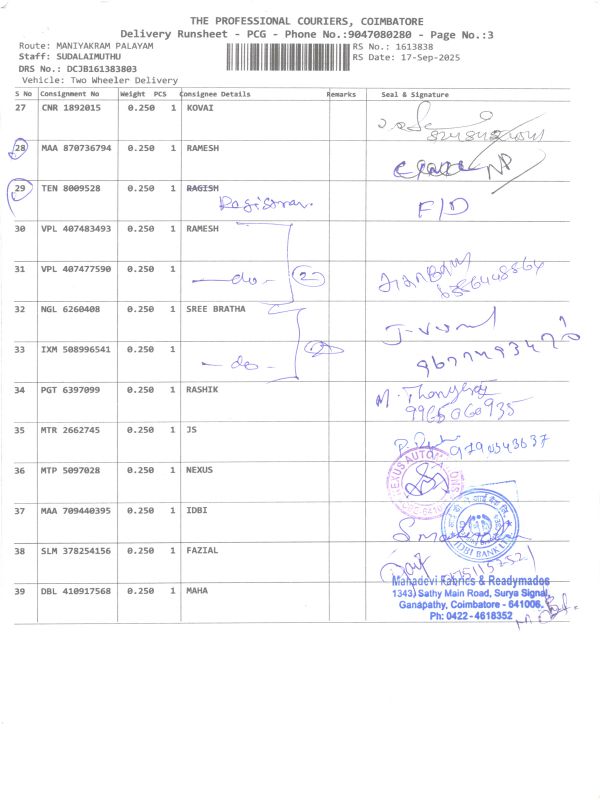 THE PROFESSIONAL COURIERS, COIMBATORE
Delivery Runsheet - PCG - Phone No.:9047080280 - Page No.:3
Route: MANIYAKRAM PALAYAM RS No.: 1613838
Staff: SUDALAIMUTHU RS Date: 17-Sep-2025
DRS No.: DCJB161383803
Vehicle: Two Wheeler Delivery
S No Consignment No Weight PCS Consignee Details Remarks Seal & Signature
27 CNR 1892015 0.250 1 KOVAI
28 MAA 870736794 0.250 1 RAMESH
29 TEN 8009528 0.250 1 RAGISH
F/D
30 VPL 407483493 0.250 1 RAMESH
31 VPL 407477590 0.250 1
-do- 2
32 NGL 6260408 0.250 1 SREE BRATHA
33 IXM 508996541 0.250 1
-do-
34 PGT 6397099 0.250 1 RASHIK
9965060935
35 MTR 2662745 0.250 1 JS
9790543637
36 MTP 5097028 0.250 1 NEXUS
37 MAA 709440395 0.250 1 IDBI
IDBI BANK
38 SLM 378254156 0.250 1 FAZIAL
39 DBL 410917568 0.250 1 MAHA
Mahadevi Fabrics & Readymades
1343) Sathy Main Road, Surya Signal,
Ganapathy, Coimbatore - 641006.
Ph: 0422 - 4618352